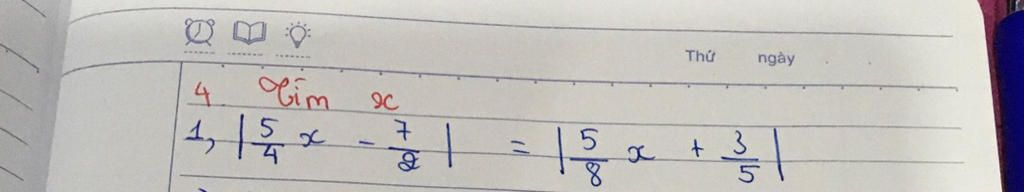 Thứ ngày
4 Tìm x
1, |5/4 x - 7/2| = |5/8 x + 3/5|